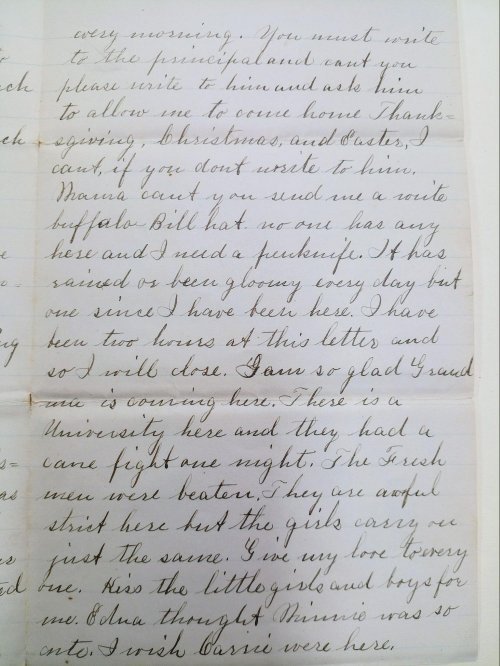 every morning. You must write
to the principal and cant you
please write to him and ask him
to allow me to come home Thank=
sgiving, Christmas, and Easter, I
cant, if you dont write to him.
Mama cant you send me a write
buffalo Bill hat. no one has any
here and I need a penknife. It has
rained or been gloomy every day but
one since I have been here. I have
been two hours at this letter and
so I will close. I am so glad Grand
ma is coming here. There is a
University here and they had a
cane fight one night. The Fresh
men were beaten. They are awful
strict here but the girls carry on
just the same. Give my love to every
one. Kiss the little girls and boys for
me. Edna thought Minnie was so
cute. I wish Carrie were here.